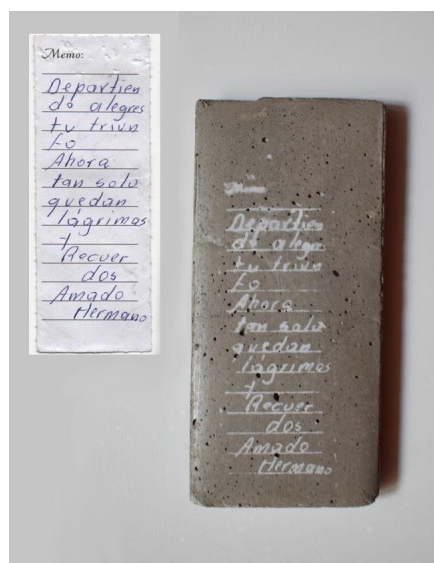 Memo:
Departien
do alegres
tu triun
fo
Ahora
tan solo
quedan
lágrimas
y
Recuer
dos
Amado
Hermano
Memo:
Departien
do alegre
tu triun
fo
Ahora
tan solo
quedan
lágrimas
y
Recuer
dos
Amado
Hermano